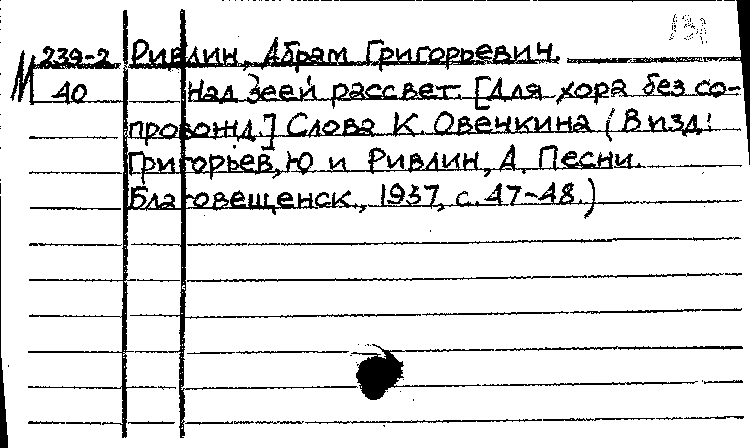 131
М 239-2 Ривлин, Абрам Григорьевич.
40 Над Зеей рассвет. [Для хора без со-
провожд.] Слова К. Овечкина (В изд:
Григорьев, Ю и Ривлин, А. Песни.
Благовещенск., 1937, с. 47-48.)